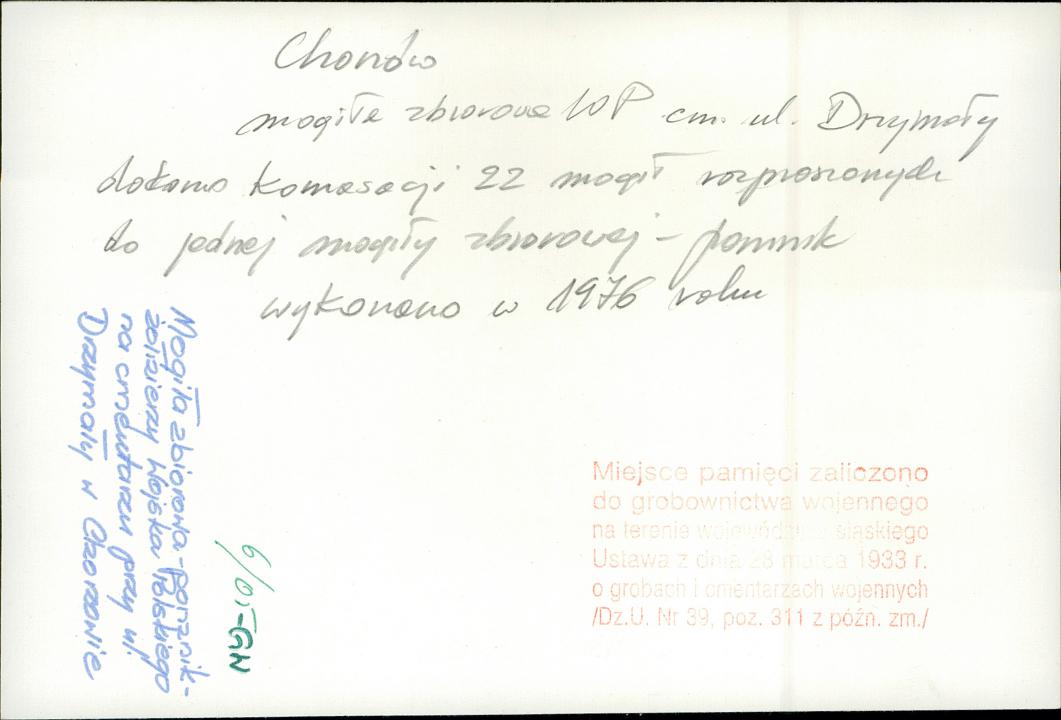 Chorzów
mogiła zbiorowa WP cm. ul. Drzymały
dokano komasacji 22 mogił rozproszonych
do jednej mogiły zbiorowej - pomnik
wykonano w 1976 roku
Mogiła zbiorowa - pomnik -
żołnierzy Wojska Polskiego
na cmentarzu przy ul.
Drzymały w Chorzowie
Miejsce pamięci zaliczono
do grobownictwa wojennego
na terenie województwa śląskiego
Ustawa z dnia 28 marca 1933 r.
o grobach i cmentarzach wojennych
/Dz.U. Nr 39, poz. 311 z późn. zm./